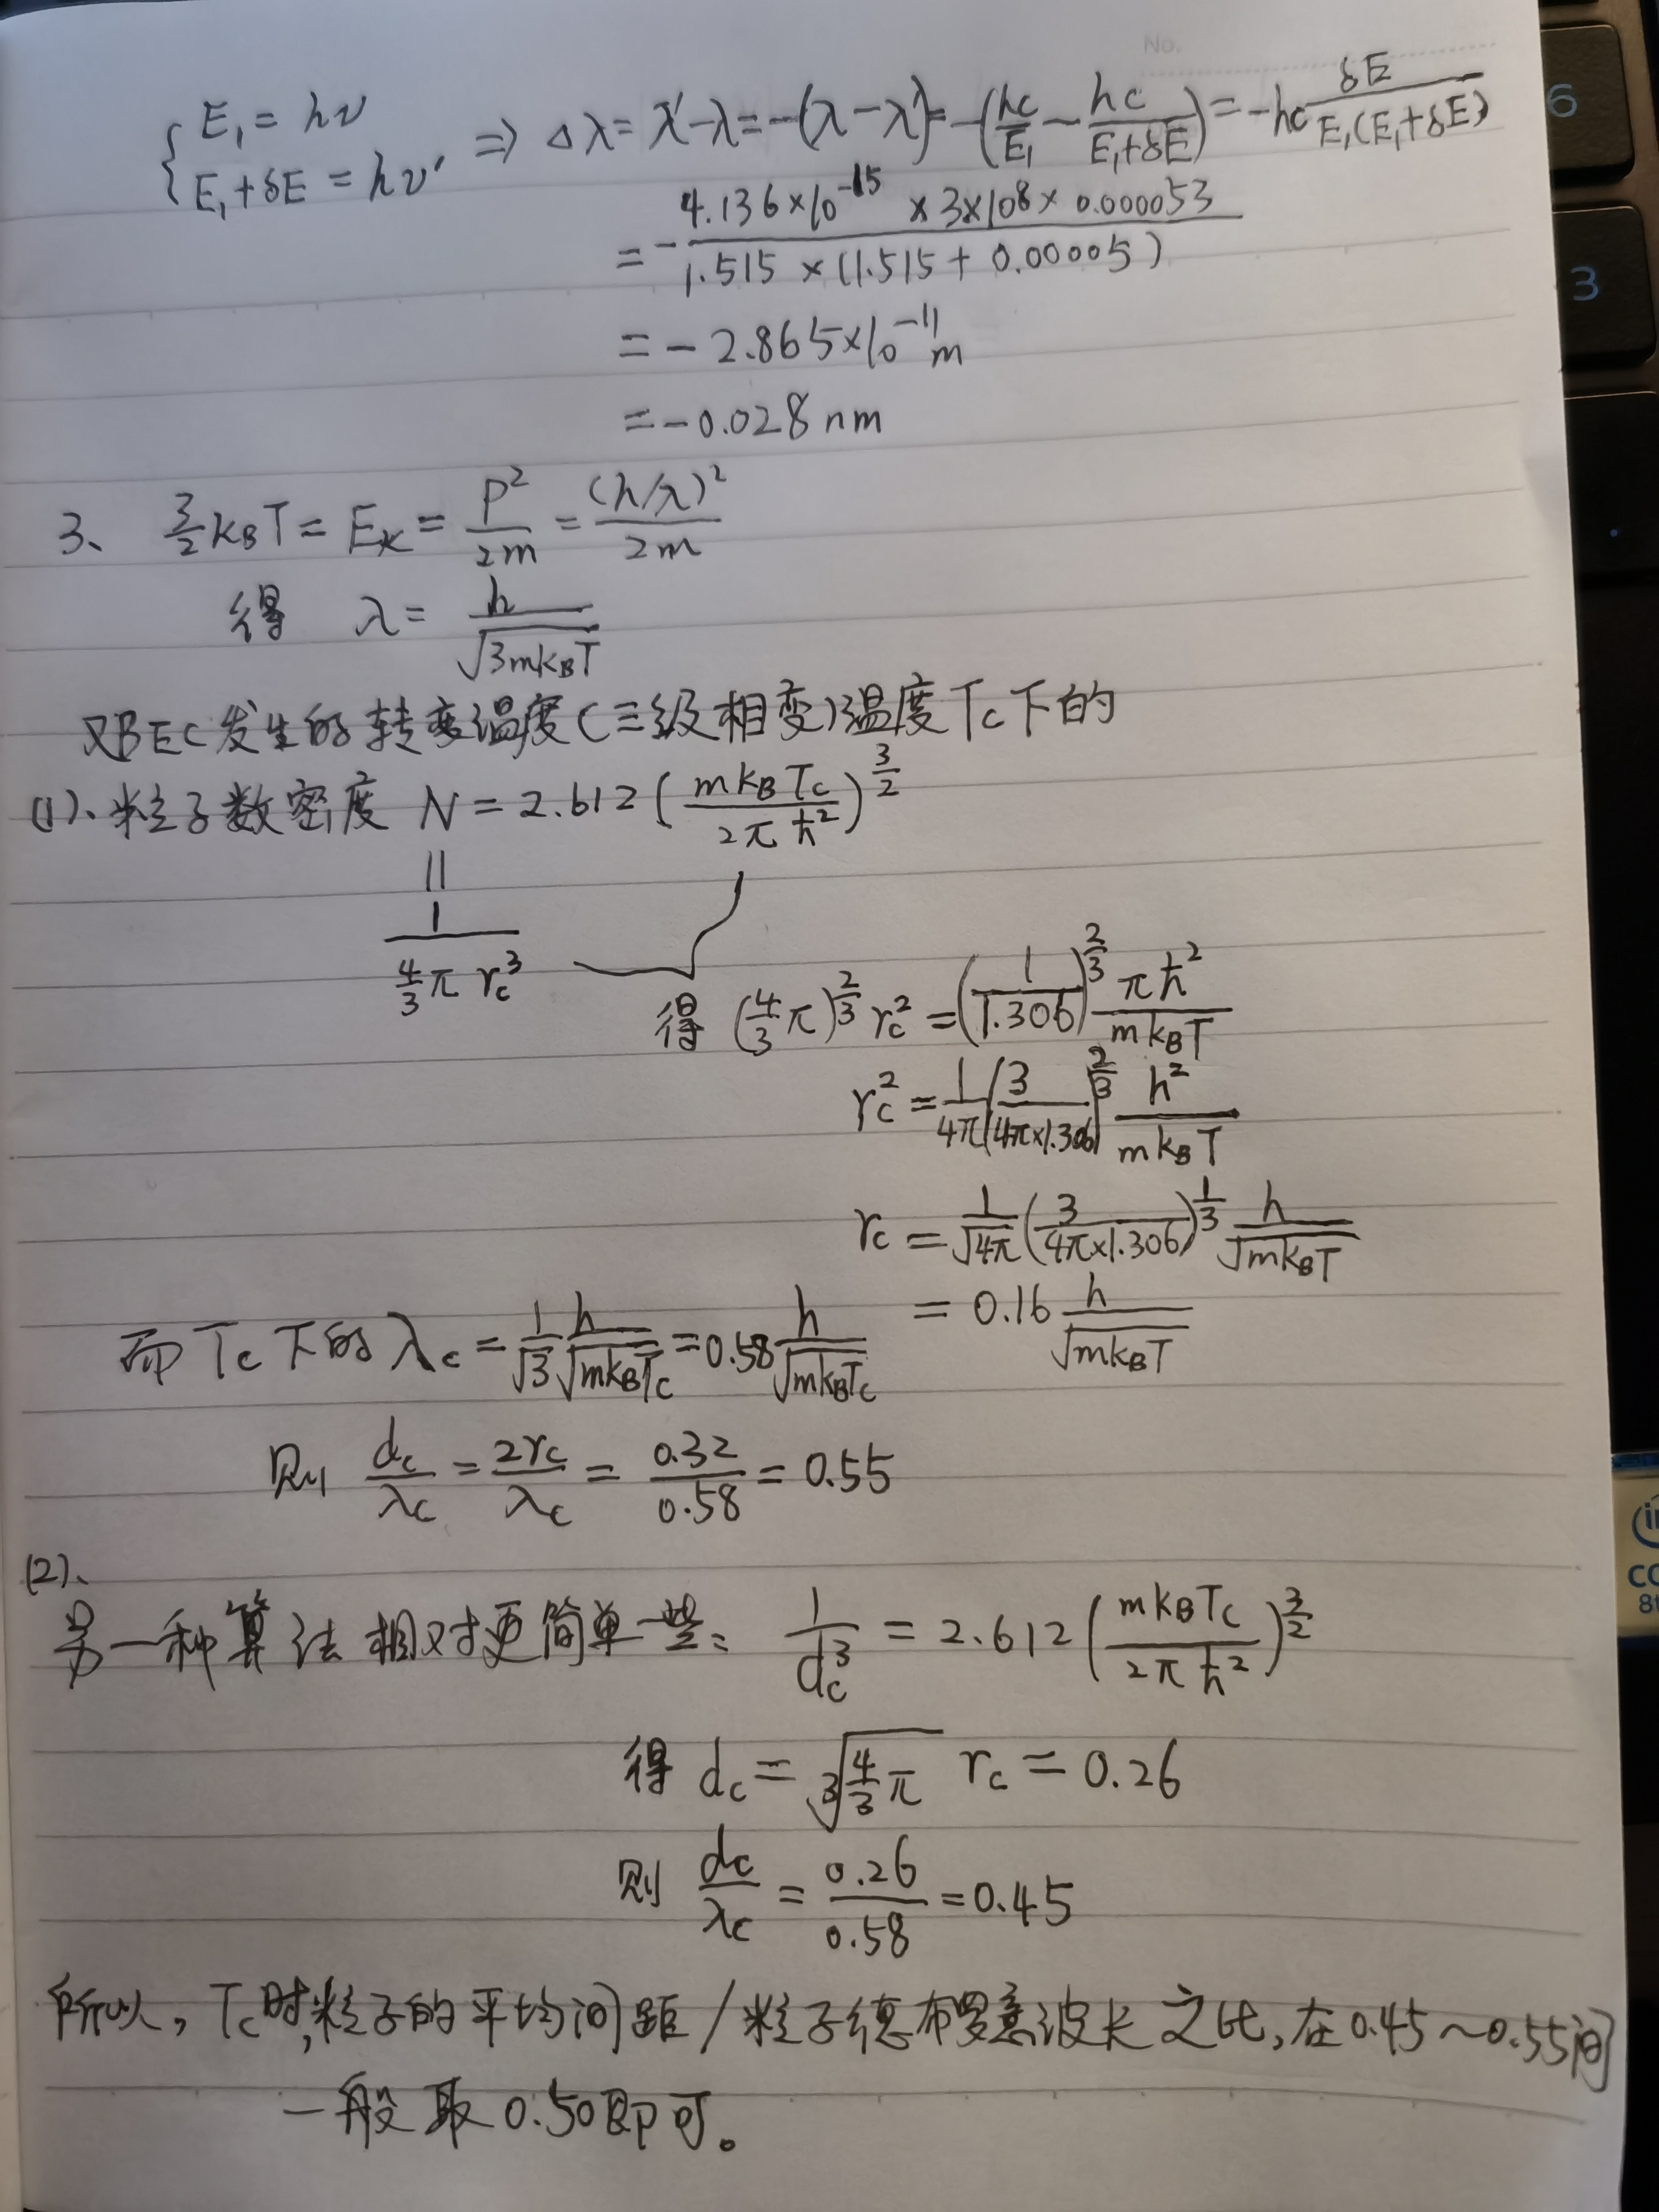 No.
{ E₁ = hν
E₁+δE = hν′ ⇒ Δλ = λ′-λ = -(λ-λ′) = -(hc/E₁ - hc/(E₁+δE)) = -hc δE/(E₁(E₁+δE))
= - (4.136×10⁻¹⁵ × 3×10⁸ × 0.000053)/(1.515 × (1.515 + 0.00005))
= - 2.865×10⁻¹¹ m
= -0.028 nm
3、 3/2 k_BT = E_k = P²/2m = (h/λ)²/2m
得 λ = h/√(3mk_BT)
又BEC发生的转变温度(三级相变)温度Tc下的
(1)、粒子数密度 N = 2.612 (mk_BTc/2πħ²)^(3/2)
||
1/(4/3 π rc³)
得 (4/3 π)^(2/3) rc² = (1/1.306)^(2/3) πħ²/mk_BT
rc² = 1/4π (3/(4π×1.306))^(2/3) h²/mk_BT
rc = 1/√4π (3/(4π×1.306))^(1/3) h/√(mk_BT)
= 0.16 h/√(mk_BT)
而Tc下的λc = 1/√3 h/√(mk_BTc) = 0.58 h/√(mk_BTc)
则 dc/λc = 2rc/λc = 0.32/0.58 = 0.55
(2)、
另一种算法相对更简单一些: 1/dc³ = 2.612 (mk_BTc/2πħ²)^(3/2)
得 dc = ³√(4/3 π) rc = 0.26
则 dc/λc = 0.26/0.58 = 0.45
所以, Tc时,粒子的平均间距/粒子德布罗意波长之比,在0.45~0.55间
一般取0.50即可。
6
3